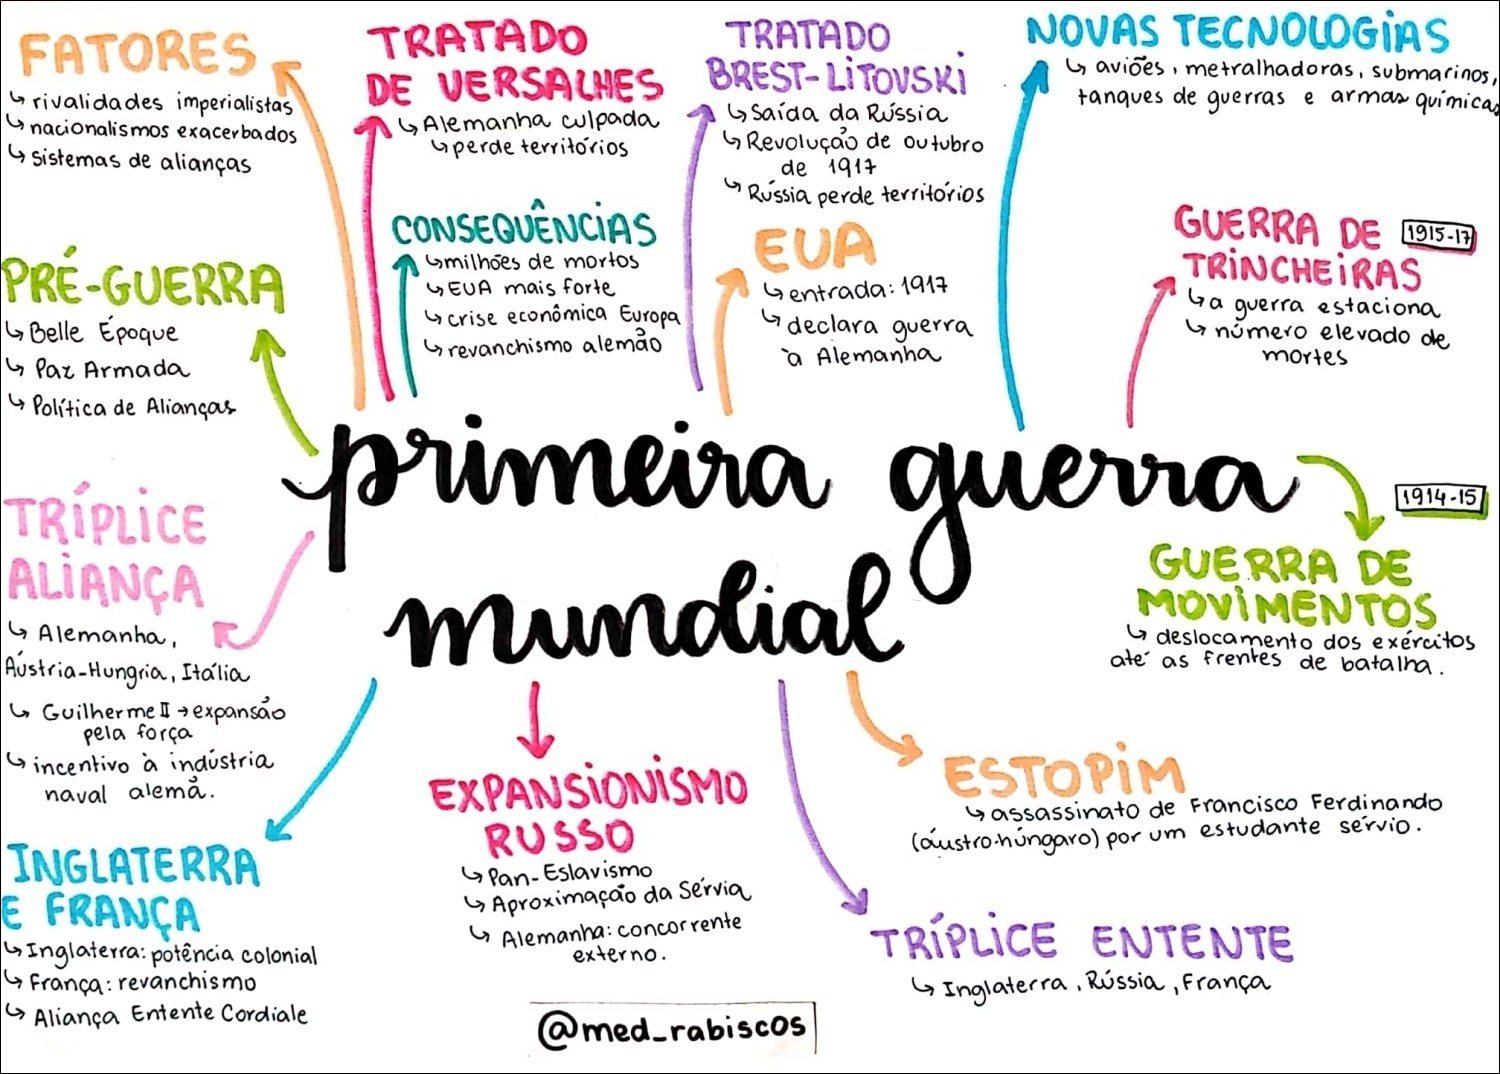 FATORES
↳ rivalidades imperialistas
↳ nacionalismos exacerbados
↳ sistemas de alianças
TRATADO
DE VERSALHES
↳ Alemanha culpada
↳ perde territórios
TRATADO
BREST-LITOVSKI
↳ Saída da Rússia
↳ Revolução de outubro
de 1917
↳ Rússia perde territórios
NOVAS TECNOLOGIAS
↳ aviões, metralhadoras, submarinos,
tanques de guerras e armas químicas
PRÉ-GUERRA
↳ Belle Époque
↳ Paz Armada
↳ Política de Alianças
CONSEQUÊNCIAS
↳ milhões de mortos
↳ EUA mais forte
↳ crise econômica Europa
↳ revanchismo alemão
EUA
↳ entrada: 1917
↳ declara guerra
à Alemanha
GUERRA DE 1915-17
TRINCHEIRAS
↳ a guerra estaciona
↳ número elevado de
mortes
primeira guerra
mundial
TRÍPLICE
ALIANÇA
↳ Alemanha,
Áustria-Hungria, Itália
↳ Guilherme II → expansão
pela força
↳ incentivo à indústria
naval alemã.
1914-15
GUERRA DE
MOVIMENTOS
↳ deslocamento dos exércitos
até as frentes de batalha.
INGLATERRA
E FRANÇA
↳ Inglaterra: potência colonial
↳ França: revanchismo
↳ Aliança Entente Cordiale
EXPANSIONISMO
RUSSO
↳ Pan-Eslavismo
↳ Aproximação da Sérvia
↳ Alemanha: concorrente
externo.
ESTOPIM
↳ assassinato de Francisco Ferdinando
(áustro-húngaro) por um estudante sérvio.
TRÍPLICE ENTENTE
↳ Inglaterra, Rússia, França
@med_rabiscos